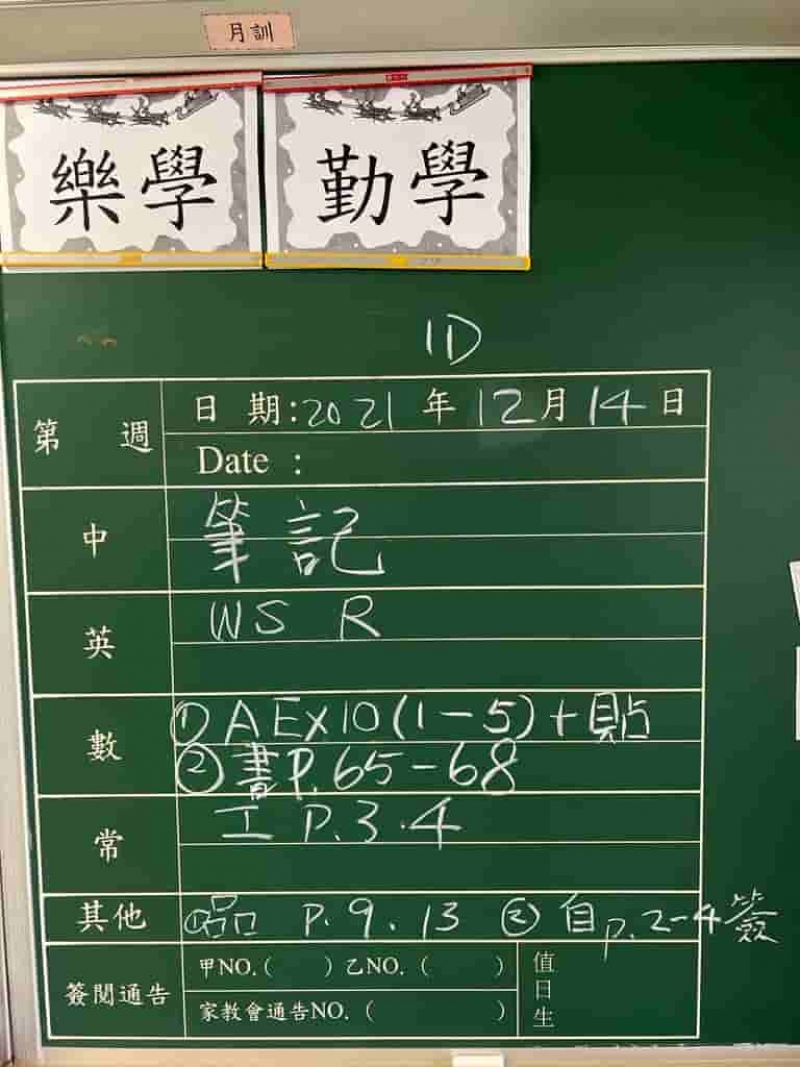 月訓
樂學 勤學
1D
第 週 日 期:2021 年 12月 14 日
Date :
中 筆記
英 WS R
數 ① A Ex10 (1-5) + 貼
② 書 P.65-68
常 工 P.3.4
其他 ①品 P.9.13 ② 自 p.2-4 簽
簽閱通告 甲NO.( ) 乙NO. ( )
家教會通告NO. ( )
值日生